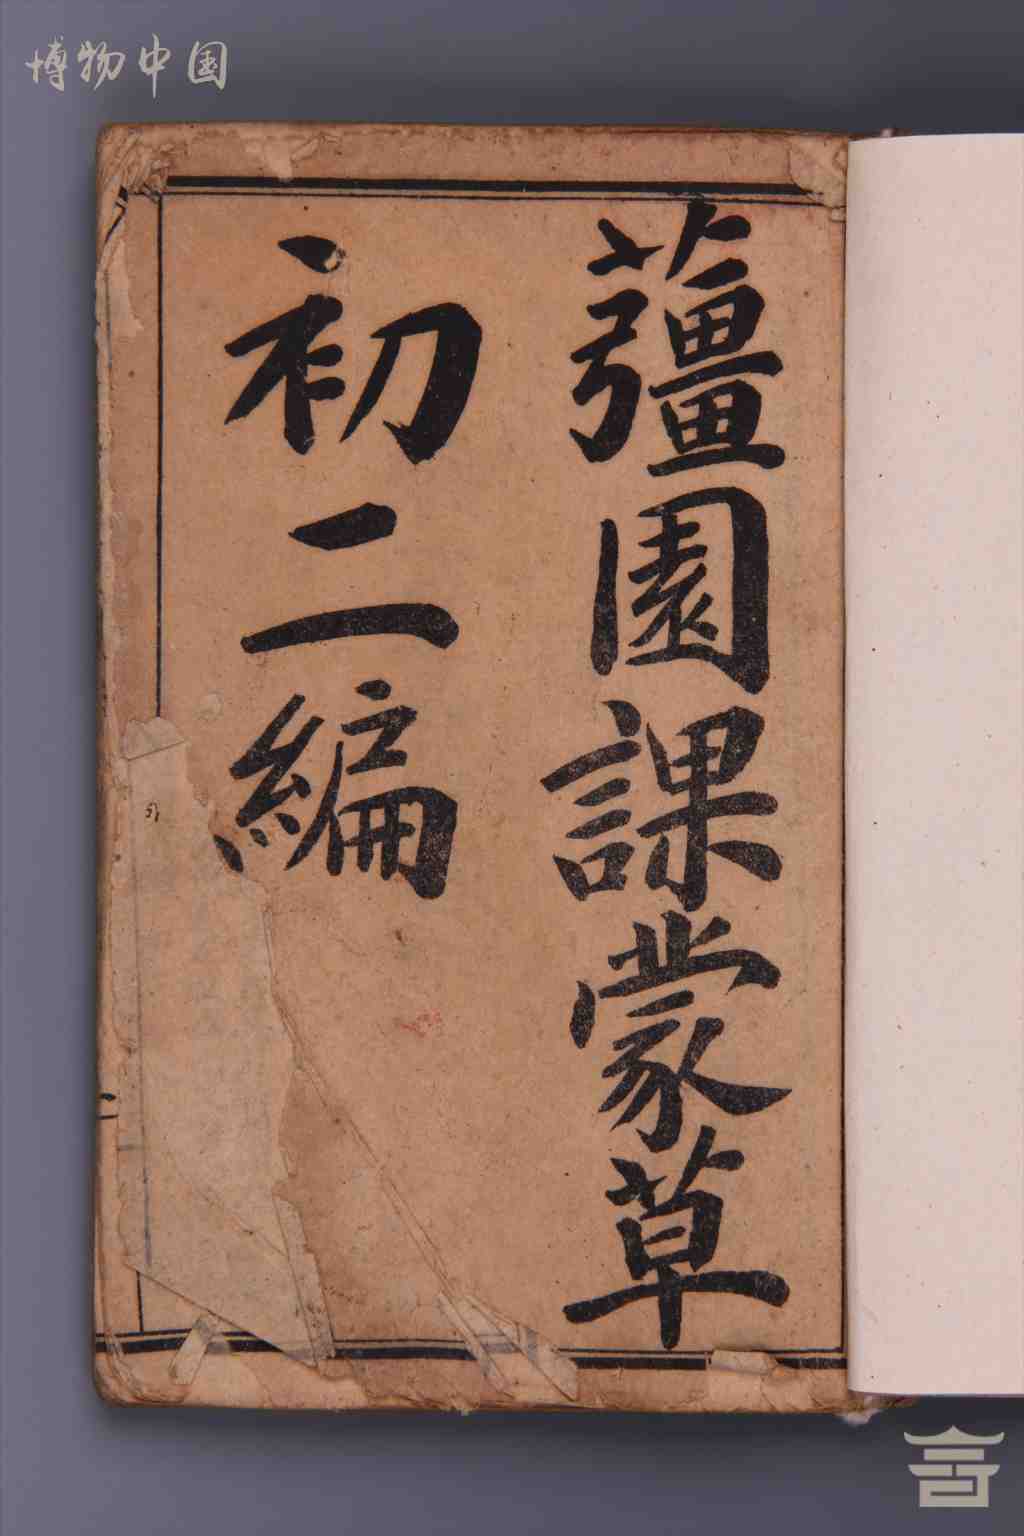 博物中国
䕬園課蒙草
初二編